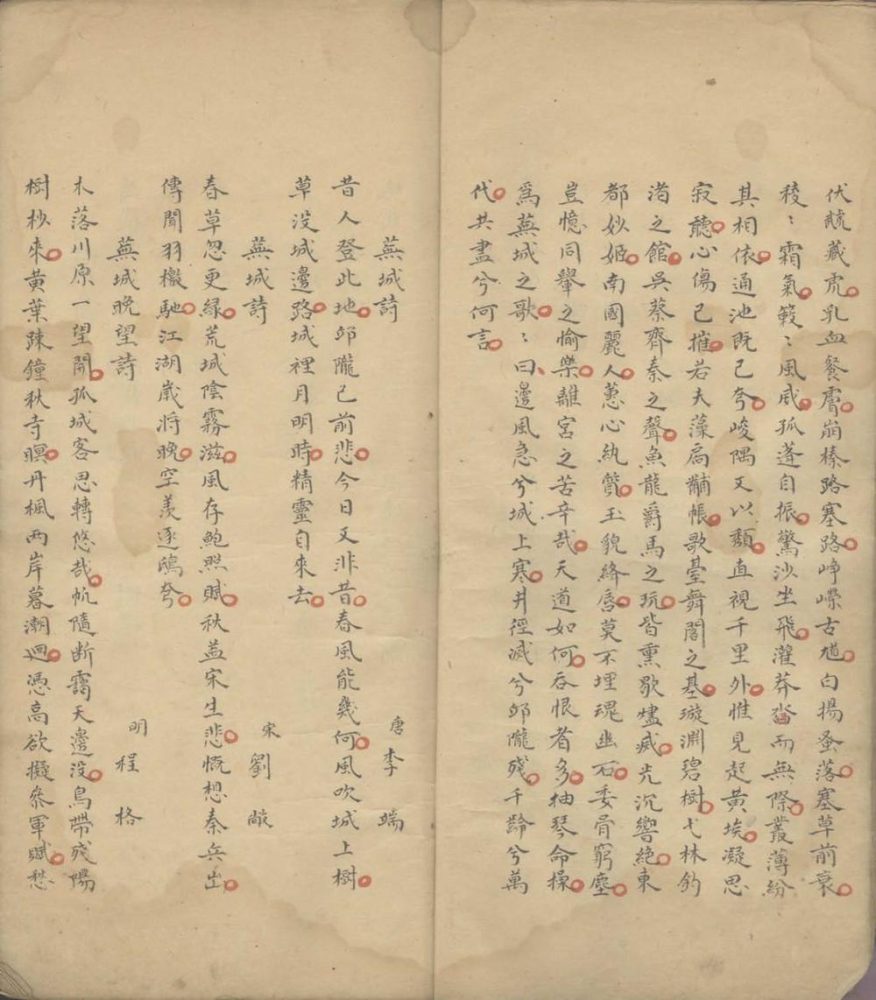 伏虣藏虎乳血餐膚崩榛路塞路崢嶸古馗白揚蚤落塞草前衰
稜〻霜氣簌〻風威孤蓬自振驚沙坐飛灌莽沓而無際叢薄紛
其相依通池既已夸峻隅又以頹直視千里外惟見起黃埃凝思
寂聽心傷已摧若夫藻扃黼帳歌臺舞閣之基璇淵碧樹弋林釣
渚之館吳蔡齊秦之聲魚龍爵馬之玩皆熏歇燼滅光沉響絶東
都妙姬南國麗人蕙心紈質玉貌絳唇莫不埋瑰幽石委骨窮塵
豈憶同轝之愉樂離宮之苦辛哉天道如何吞恨者多抽琴命操
爲蕪城之歌〻曰邊風急兮城上寒井徑滅兮邱隴殘千齡兮萬
代共盡兮何言
蕪城詩 唐李端
昔人登此地邱隴已前悲今日又非昔春風能幾何風吹城上樹
草没城邊路城裡月明時精靈自來去
蕪城詩 宋劉敞
春草忽更緑荒城陰霧滋風存鮑照賦秋益宋生悲慨想秦兵出
傳聞羽檄馳江湖歲將晚空羨逐鴟夸
蕪城晚望詩 明程格
木落川原一望開孤城客思轉悠哉帆隨斷靄天邊没鳥帶殘陽
樹杪來黃葉疎鐘秋寺暝丹楓两岸暮潮迴憑高欲擬叅軍賦愁